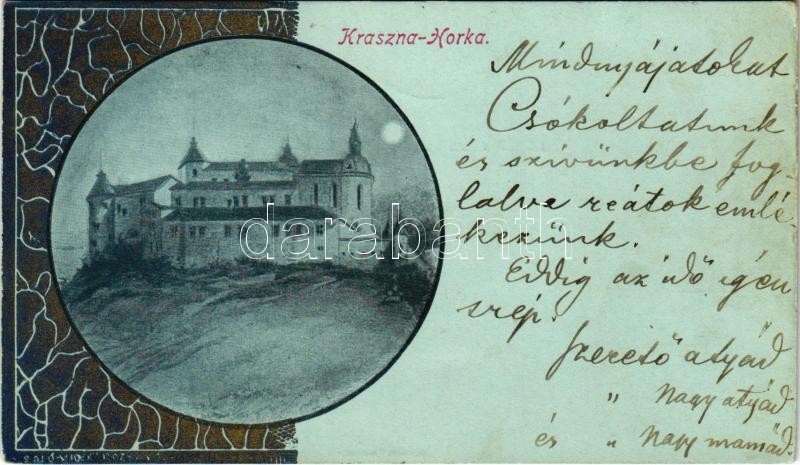 Kraszna-Horka.
Mindnyájatokat
Csókoltatunk
és szivünkbe fog-
lalva reátok emlé-
kezünk.
Eddig az idő igen
szép.
Szerető atyád
" Nagy atyád
és " Nagy mamád.
darabanth